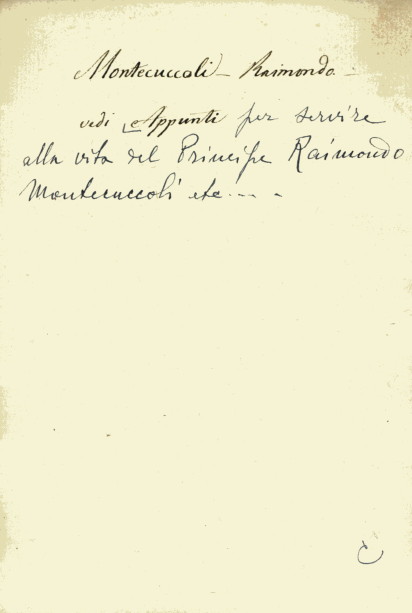 Montecuccoli - Raimondo -
vedi Appunti per servire
alla vita del Principe Raimondo
Montecuccoli etc... -
C